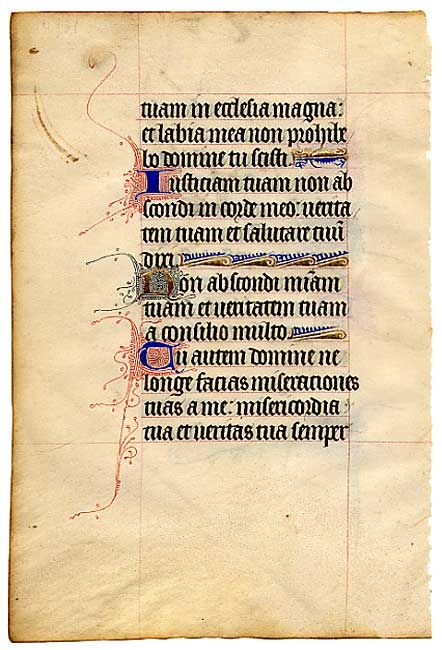 tuam in ecclesia magna:
et labia mea non prohibe
bo domine tu scisti.
Iusticiam tuam non ab
scondi in corde meo: verita
tem tuam et salutare tuū
dixi.
Non abscondi miām
tuam et veritatem tuam
a consilio multo.
Tu autem domine ne
longe facias miseraciones
tuas a me: misericordia
tua et veritas tua semper